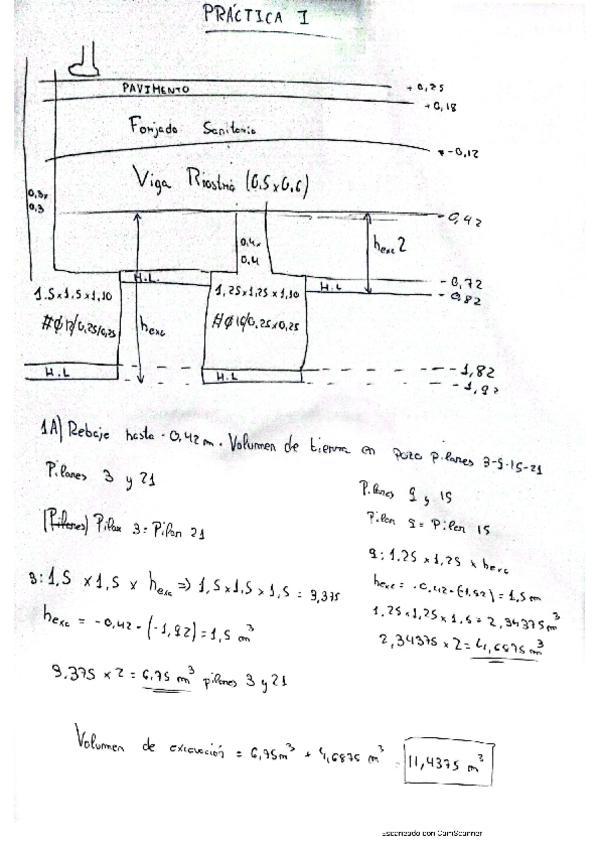 PRÁCTICA I
PAVIMENTO
+0,25
+0,18
Forjado Sanitario
-0,12
Viga Riostra (0.5x0,6)
0,3x
0,3
-0,42
0,4x
0,4
hexc 2
H.L.
H.L
-0,72
-0,82
1.5x1.5x1,10
1,25x1,25x1,10
#Ø12/0,25/0,25
hexc
#Ø16/0,25x0,25
H.L
H.L
-1,82
-1,92
1A) Rebaje hasta -0,42m. Volumen de tierra en pozo pilares 3-9-15-21
Pilares 3 y 21
(Pilares) Pilar 3 = Pilar 21
3: 1,5 x 1,5 x hexc => 1,5x1,5x1,5 = 3,375
hexc = -0,42-(-1,92)=1,5 m³
3.375 x 2 = 6,75 m³ pilares 3 y 21
Pilares 9 y 15
Pilar 9 = Pilar 15
9: 1.25 x 1,25 x hexc
hexc = -0,42-(-1,92) = 1,5m
1,25x1,25x1,5 = 2,34375m³
2,34375 x 2 = 4,6875 m³
Volumen de excavación = 6,75m³ + 4,6875 m³ = 11,4375 m³
Escaneado con CamScanner